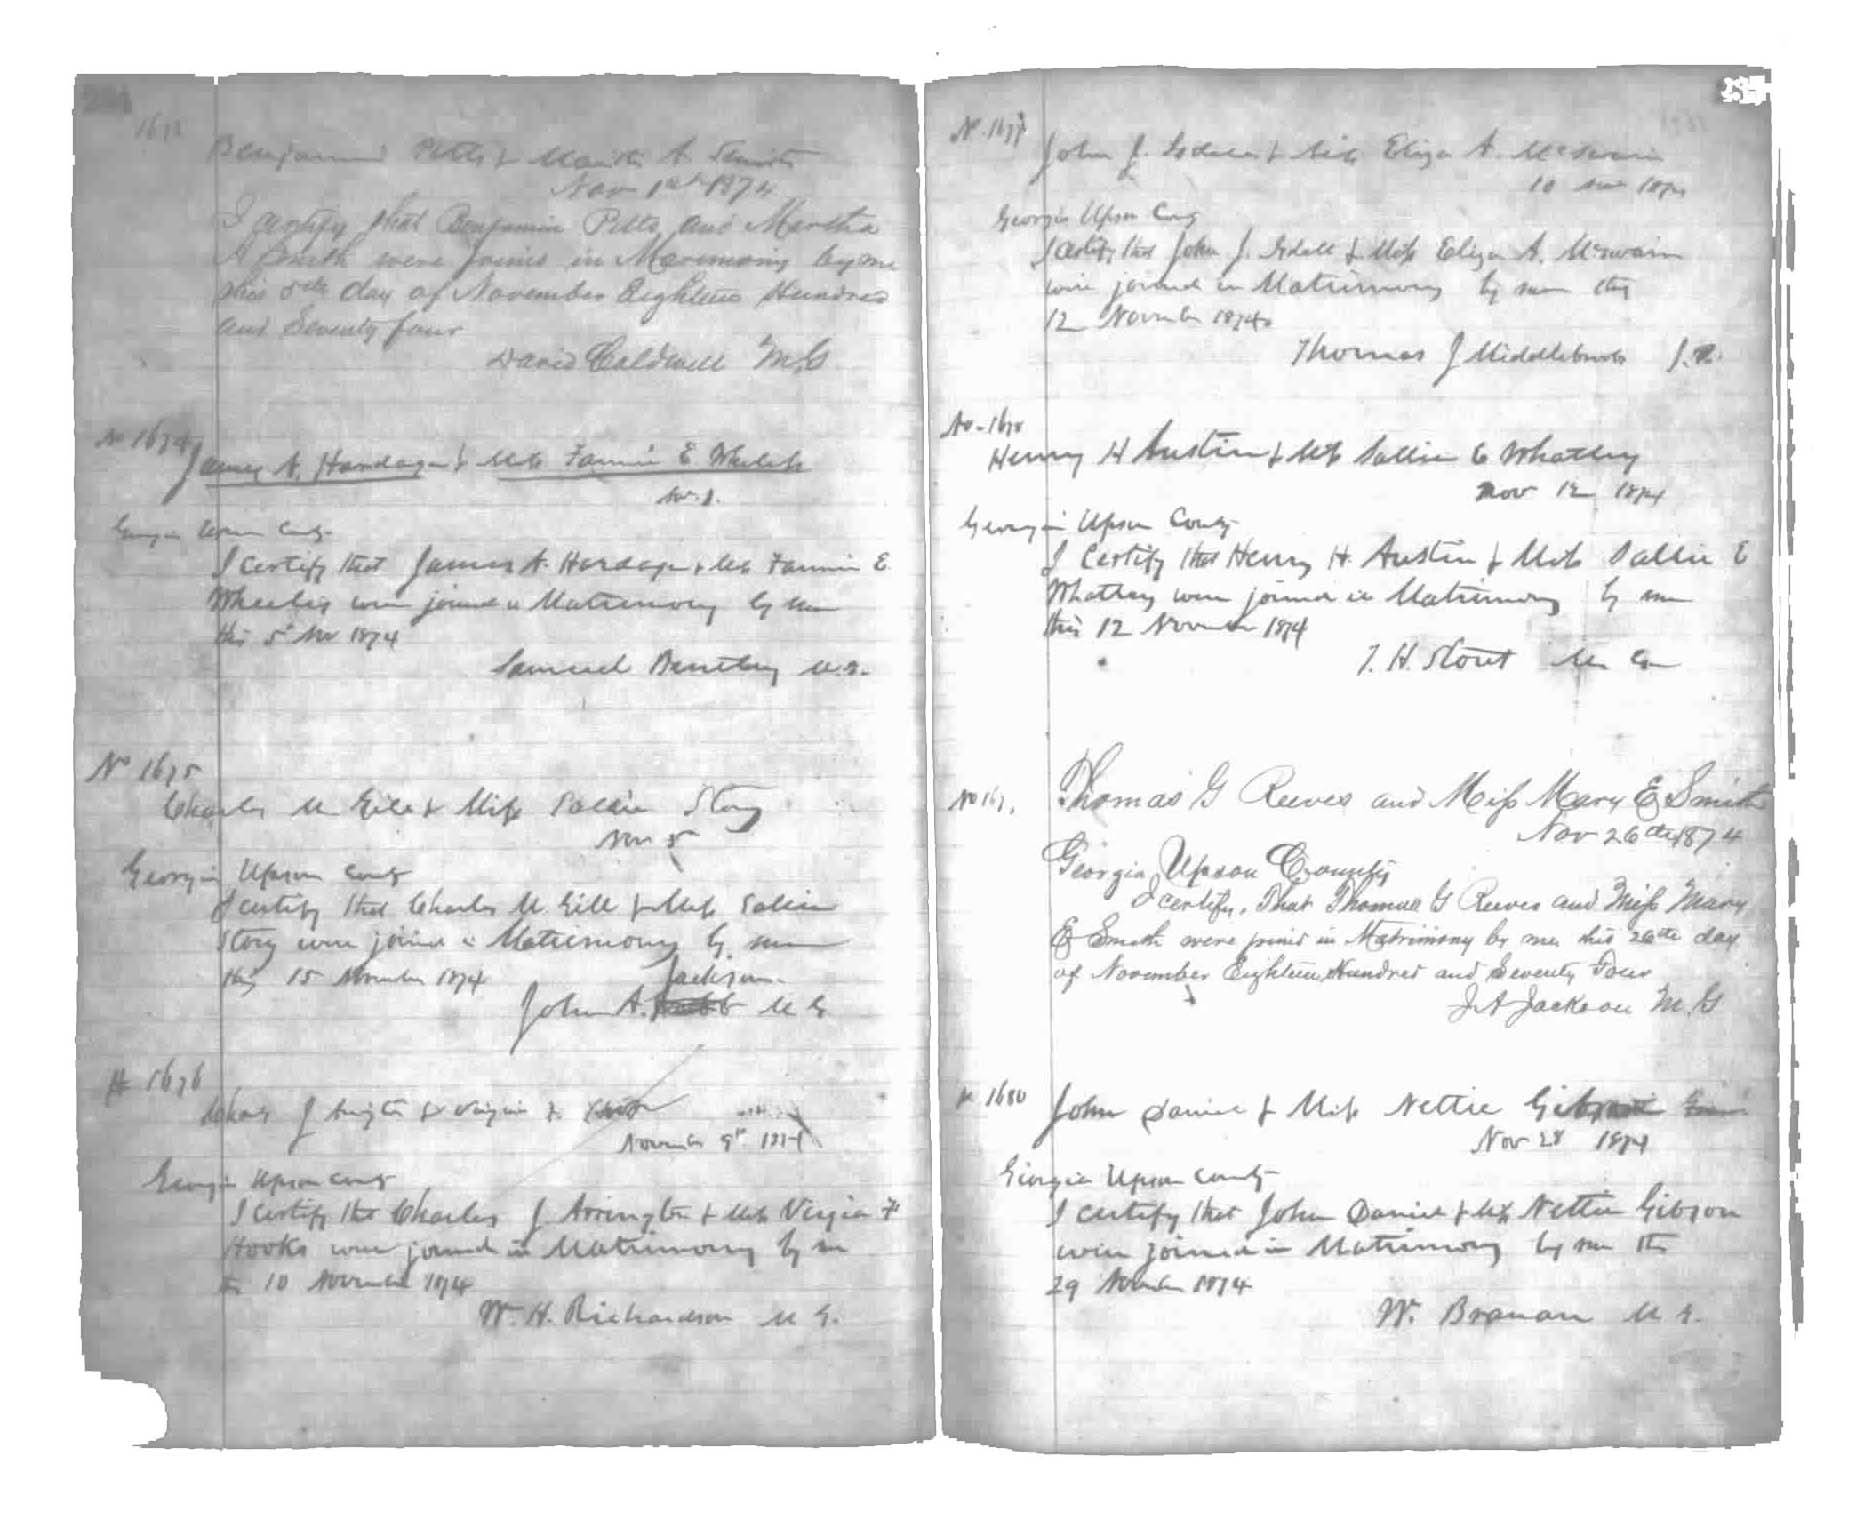 Benjamin Pitts & Martha A. Smith
Nov 1st 1874
I certify that Benjamin Pitts and Martha
A Smith were joined in Matrimony by me
this 5th day of November Eighteen Hundred
and Seventy four
David Caldwell M.G
No 1674
James A. Hardage & Miss Fannie E Wheeler
Nov. 1.
Georgia Upson County
I certify that James A. Hardage & Miss Fannie E.
Wheeler were joined in Matrimony by me
this 5th Nov 1874
Samuel Bentley M.G.
No 1675
Charles M Gill & Miss Sallie Story
Nov 5
Georgia Upson County
I certify that Charles M. Gill & Miss Sallie
Story were joined in Matrimony by me
this 15 November 1874
Jackson
John A. M G
# 1676
Charles J Arrington & Virginia F.
November 9th 1874
Georgia Upson County
I certify that Charles J Arrington & Miss Virgia F
Hooks were joined in Matrimony by me
this 10 November 1874
W. H. Richardson M G.
No. 1677
John J. & Miss Eliza A. McSwain
10 Nov 1874
Georgia Upson County
I certify that John J. & Miss Eliza A. McSwain
were joined in Matrimony by me this
12 November 1874
Thomas J Middlebrooks J.P.
No. 1678
Henry H Austin & Miss Sallie E Whatley
Nov 12 1874
Georgia Upson County
I certify that Henry H. Austin & Miss Sallie E
Whatley were joined in Matrimony by me
this 12 November 1874
T. H. Stout M G
No 167
Thomas G Reeves and Miss Mary E Smith
Nov 26th 1874
Georgia, Upson County
I certify, That Thomas G Reeves and Miss Mary
E Smith were joined in Matrimony by me this 26th day
of November Eighteen Hundred and Seventy Four
J A Jackson M.G
# 1680
John Daniel & Miss Nettie Gibson
Nov 28 1874
Georgia Upson County
I certify that John Daniel & Miss Nettie Gibson
were joined in Matrimony by me this
29 November 1874
W. Branan M G.